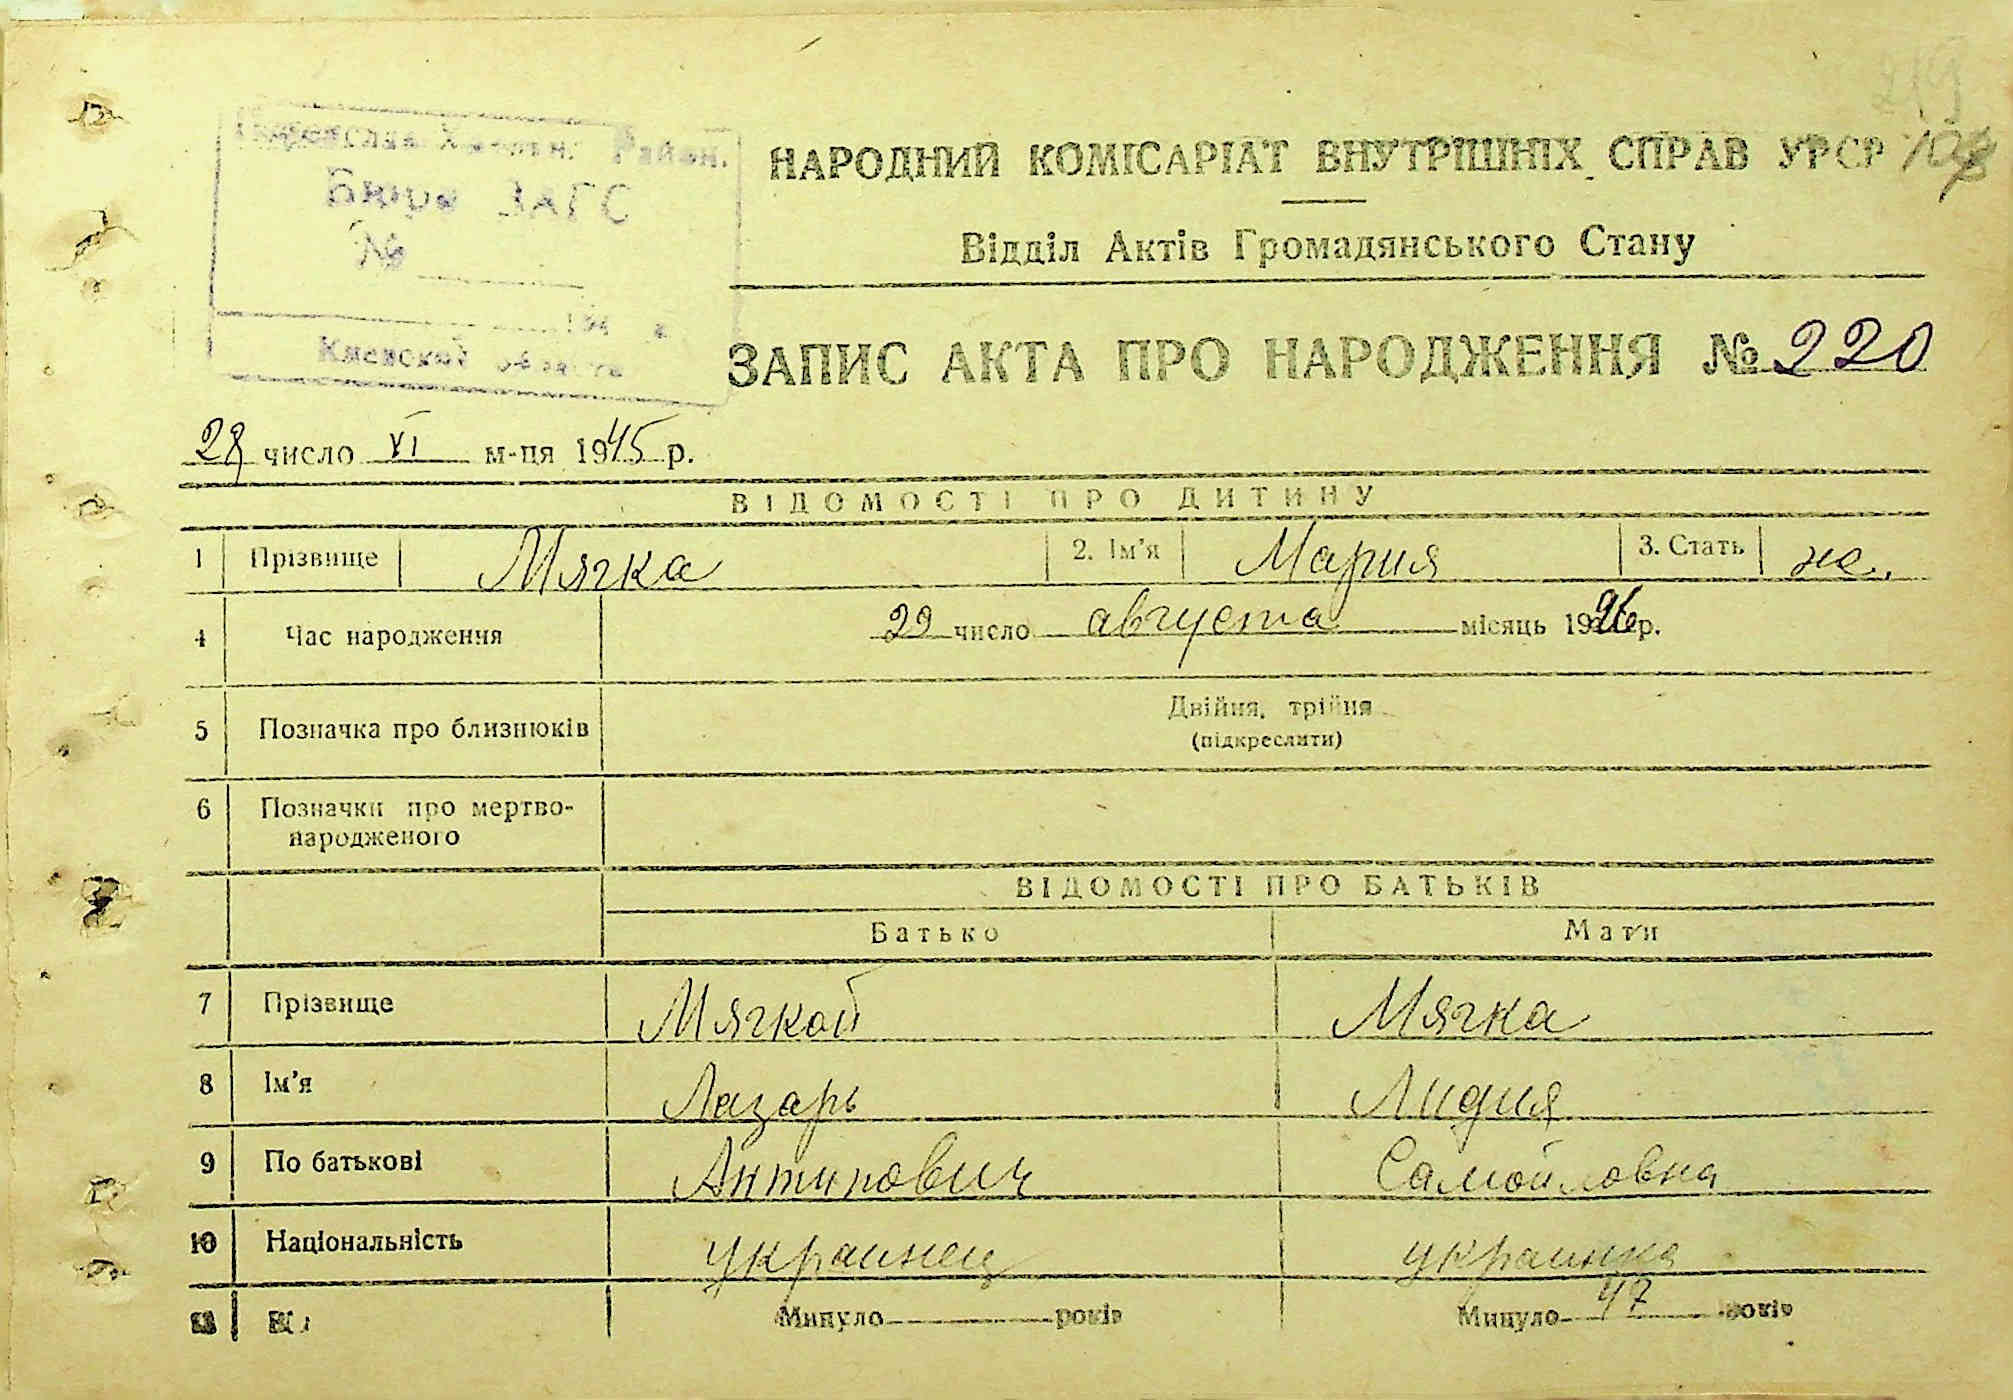 219
Район.
Бюро ЗАГС
№
194 г
Киевской области
НАРОДНИЙ КОМІСАРІАТ ВНУТРІШНІХ СПРАВ УРСР
Відділ Актів Громадянського Стану
ЗАПИС АКТА ПРО НАРОДЖЕННЯ № 220
28 число VI м-ця 1945 р.
ВІДОМОСТІ ПРО ДИТИНУ
1 Прізвище Мягка 2. Ім'я Мария 3. Стать ж.
4 Час народження 29 число августа місяць 1926 р.
5 Позначка про близнюків Двійня, трійня
(підкреслити)
6 Позначки про мертво-
народженого
ВІДОМОСТІ ПРО БАТЬКІВ
Батько Мати
7 Прізвище Мягкой Мягка
8 Ім'я Лазарь Лидия
9 По батькові Антипович Самойловна
10 Національність украинец украинка
Минуло років Минуло 47 років